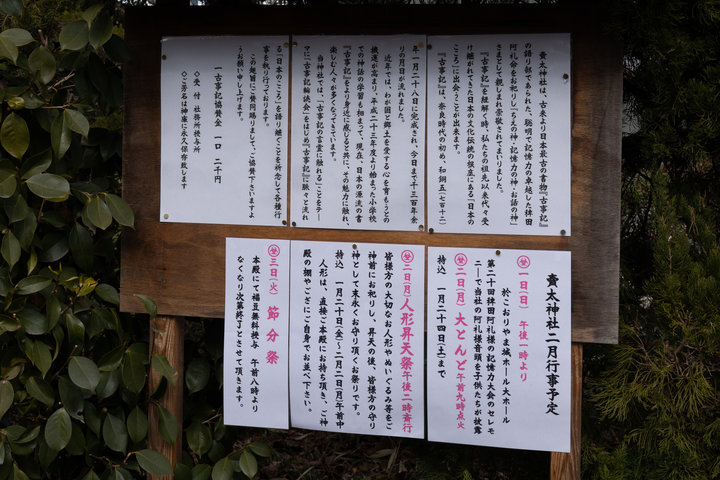 賣太神社は、古来より日本最古の書物『古事記』
の語り部であられた、聡明で記憶力の卓越した稗田
阿礼命をお祀りし「ちえの神・記憶力の神・お話の神」
さまとして親しまれ崇敬されてまいりました。
『古事記』を紐解く時、私たちの祖先以来代々受
け継がれてきた日本の文化伝統の根底にある「日本の
こころ」に出会うことが出来ます。
『古事記』は、奈良時代の初め、和銅五(七百十二)
年一月二十八日に完成され、今日まで千三百年余
りの月日が流れました。
近年では、わが国と郷土を愛する心を育もうとの
機運が高まり、平成二十三年度より始まった小学校
での神話の学習も相まって、現在、日本の源流の書
『古事記』をより身近に感じると共に、その魅力に触れ、
楽しむ人々が多くなってきています。
当神社では、「古事記の言霊に触れる」ことをテー
マに、「古事記輪読会」をはじめ、『古事記』に脈々と流れ
る「日本のこころ」を語り継ぐことを祈念して各種行
事を執り行っております。
この趣旨にご賛同賜りまして、ご協賛下さいますよ
うお願い申し上げます。
一古事記協賛金 一口 二千円
◇受付 社務所授与所
◇ご芳名は神庫に永久保存致します
賣太神社二月行事予定
㊐一日(日)午後一時より
於こおりやま城ホール大ホール
第二十回稗田阿礼様の記憶力大会のセレモ
ニーで当社の阿礼様音頭を子供たちが披露
㊐二日(月)大とんど午前九時点火
持込 一月二十四日(土)まで
㊐二日(月)人形昇天祭午後二時斎行
皆様方の大切なお人形やぬいぐるみ等をご
神前にお祀りし、昇天の後、皆様方の守り
神として末永くお守り頂くお祭りです。
持込 一月二十日(金)~二月二日(月)午前中
人形は、直接ご本殿にお持ち頂き、ご神
殿の棚やござにご自身でお並べ下さい。
三日(火)節分祭
本殿にて福豆無料授与 午前八時より
なくなり次第終了とさせて頂きます。